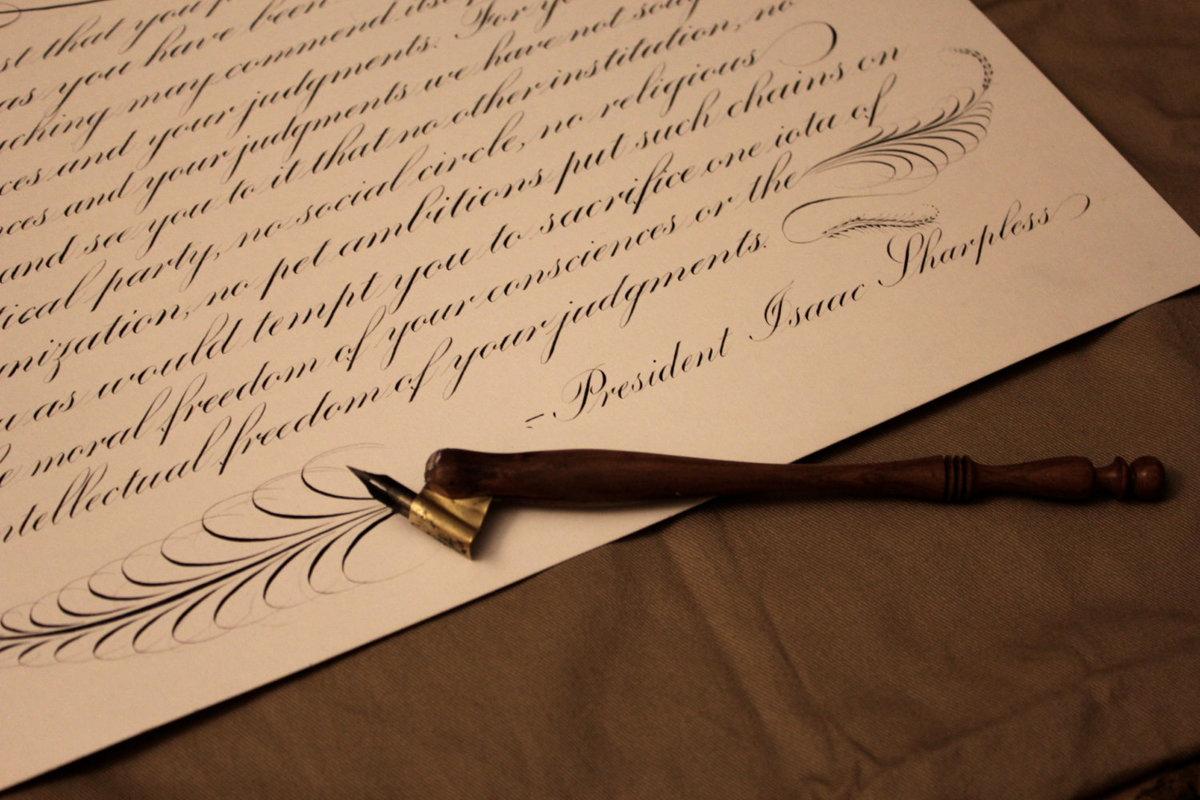 that you
as you have been
may commend
and your judgments. For
and your judgments we have not
and see you to it that no other institution, no
party, no social circle, no religious
no pet ambitions put such chains on
as would tempt you to sacrifice one iota of
moral freedom of your consciences or the
intellectual freedom of your judgments.
-President Isaac Sharpless